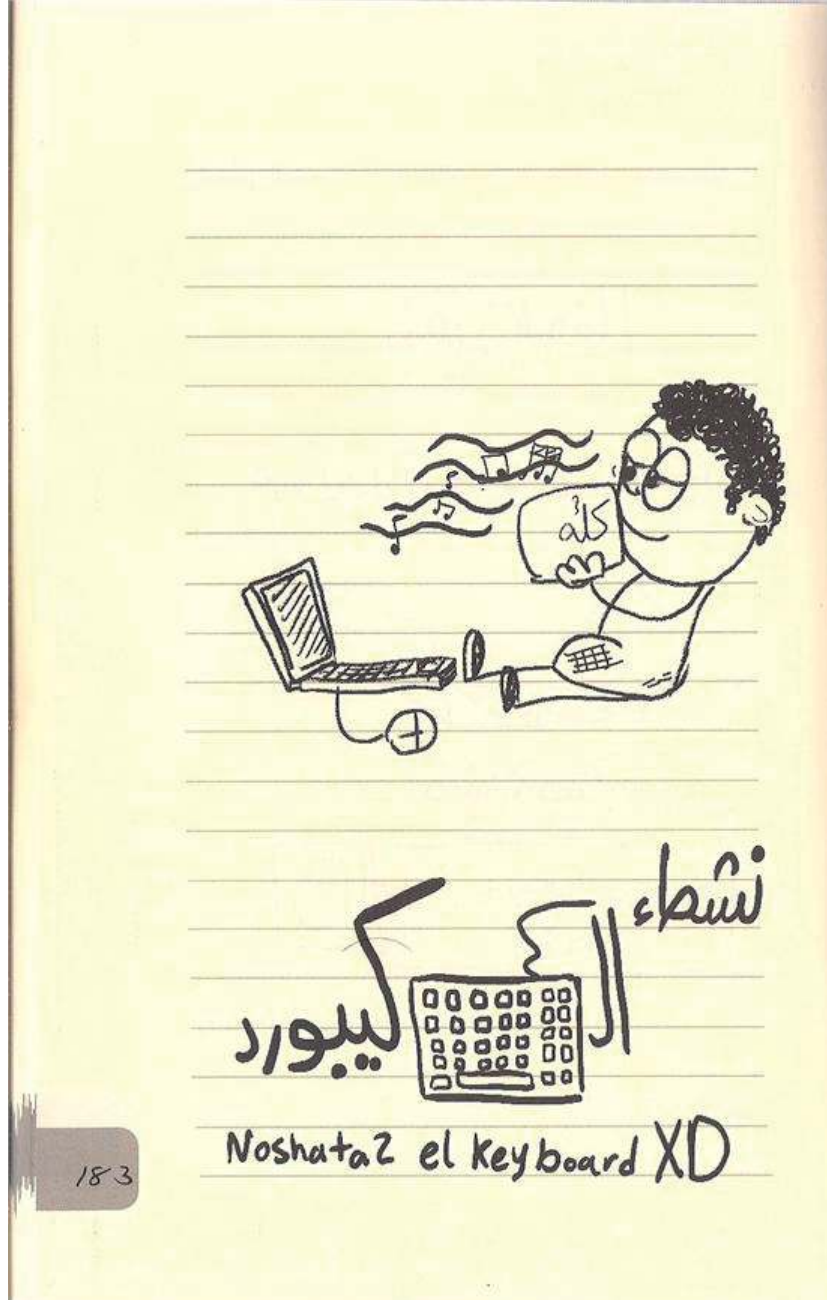 كله
نشطاء
الكيبورد
Noshata2 el keyboard XD
183